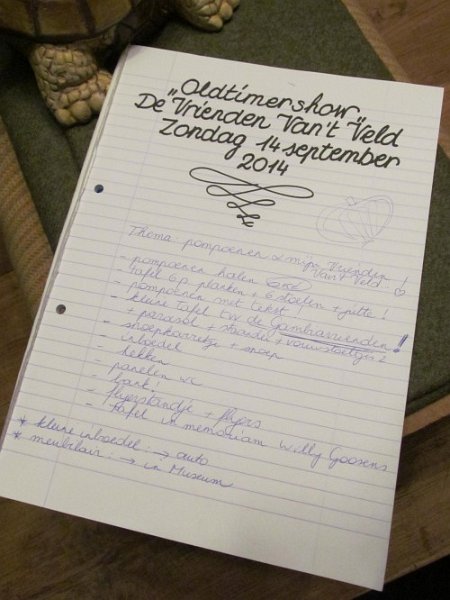 „Oldtimershow"
De „Vrienden Van't Veld"
Zondag 14 september
2014
Thema pompoenen & mijn Vrienden
Van't Veld
- pompoenen halen
- tafel 6p. planken + 6 stoelen + petté!
- pompoenen met tekst!
- kleine tafel t.v. de Gambavrienden!
+ parasol + staander + vouwstoeltjes 2
- snoepkarretje + snoep
- inboedel
- hekken
- panelen wc
- bank!
- flyerstandje + flyers
- tafel in memoriam Willy Goosens
* kleine inboedel: → auto
* meubilair: → in Museum